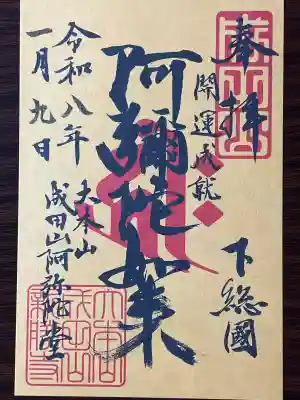 奉拝
開運成就
下総國
阿彌陀如来
大本山
成田山阿弥陀堂
令和八年
一月九日